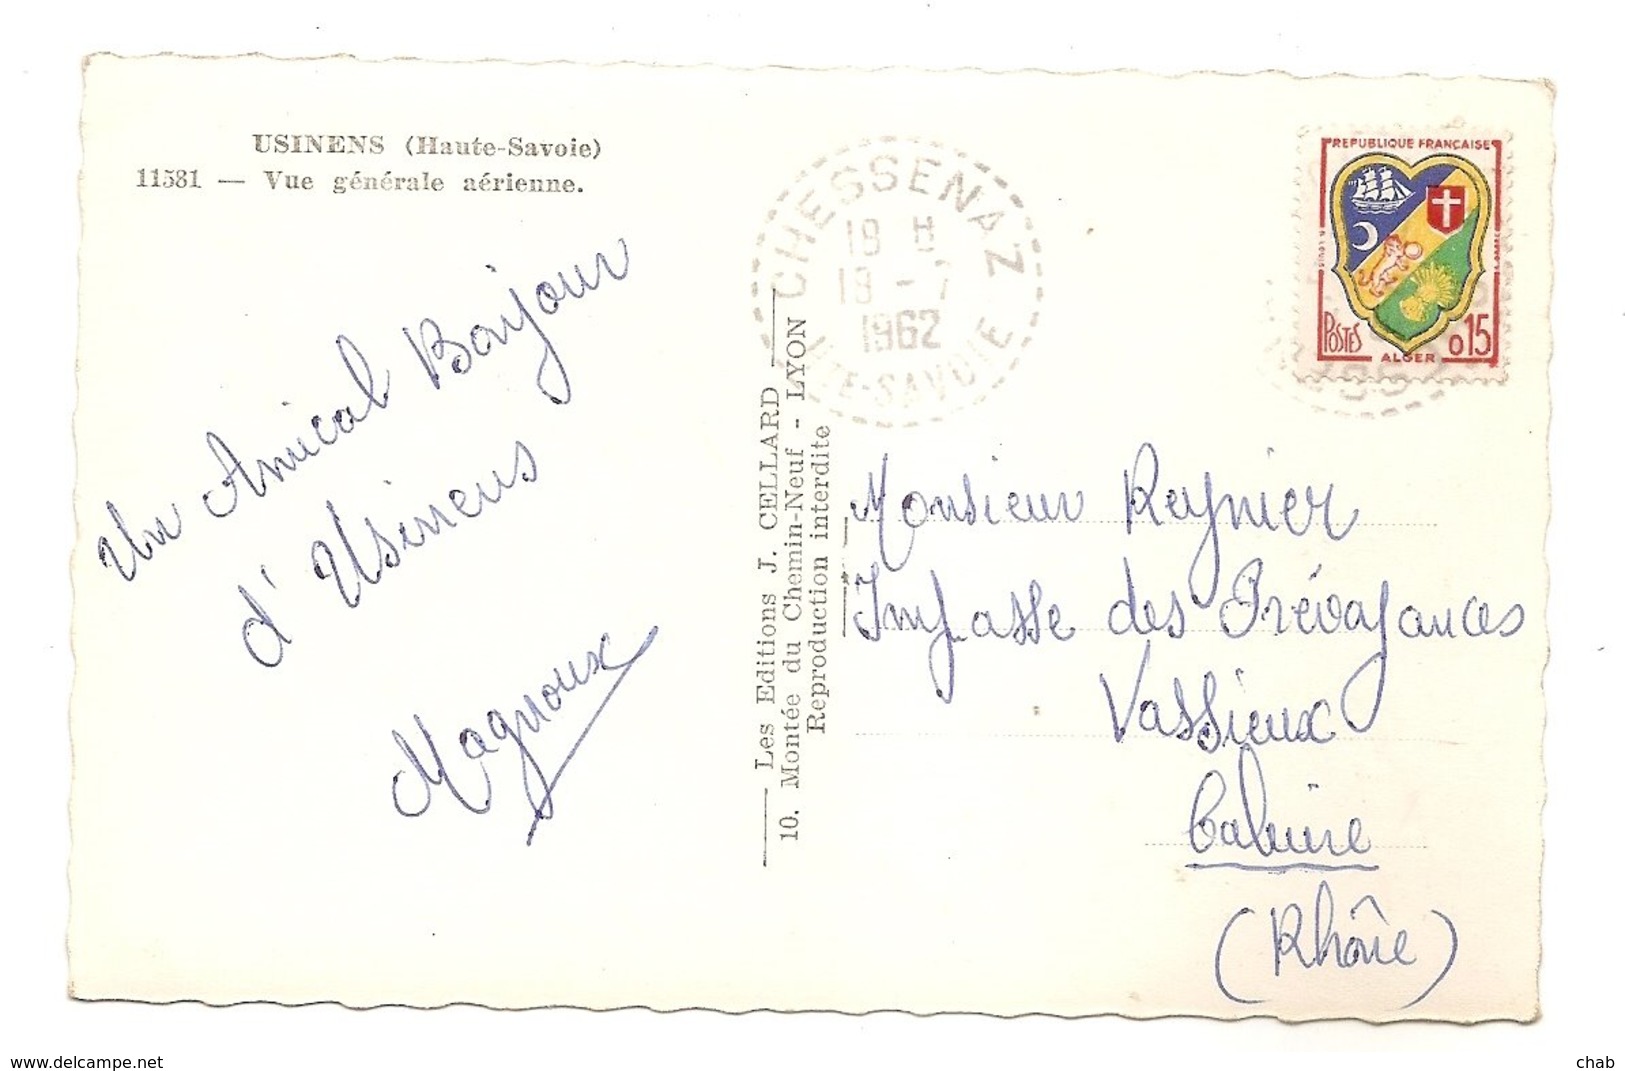 USINENS (Haute-Savoie)
11581 — Vue générale aérienne.
Un Amical Bonjour
d'Usinens
Magnoux
Les Editions J. CELLARD
10. Montée du Chemin-Neuf - LYON
Reproduction interdite
CHESSENAZ
18 H
18 - 7
1962
HTE-SAVOIE
REPUBLIQUE FRANÇAISE
POSTES
ALGER
0,15
Monsieur Reynier
Impasse des Prévoyances
Vassieux
Caluire
(Rhône)
www.delcampe.net
chab